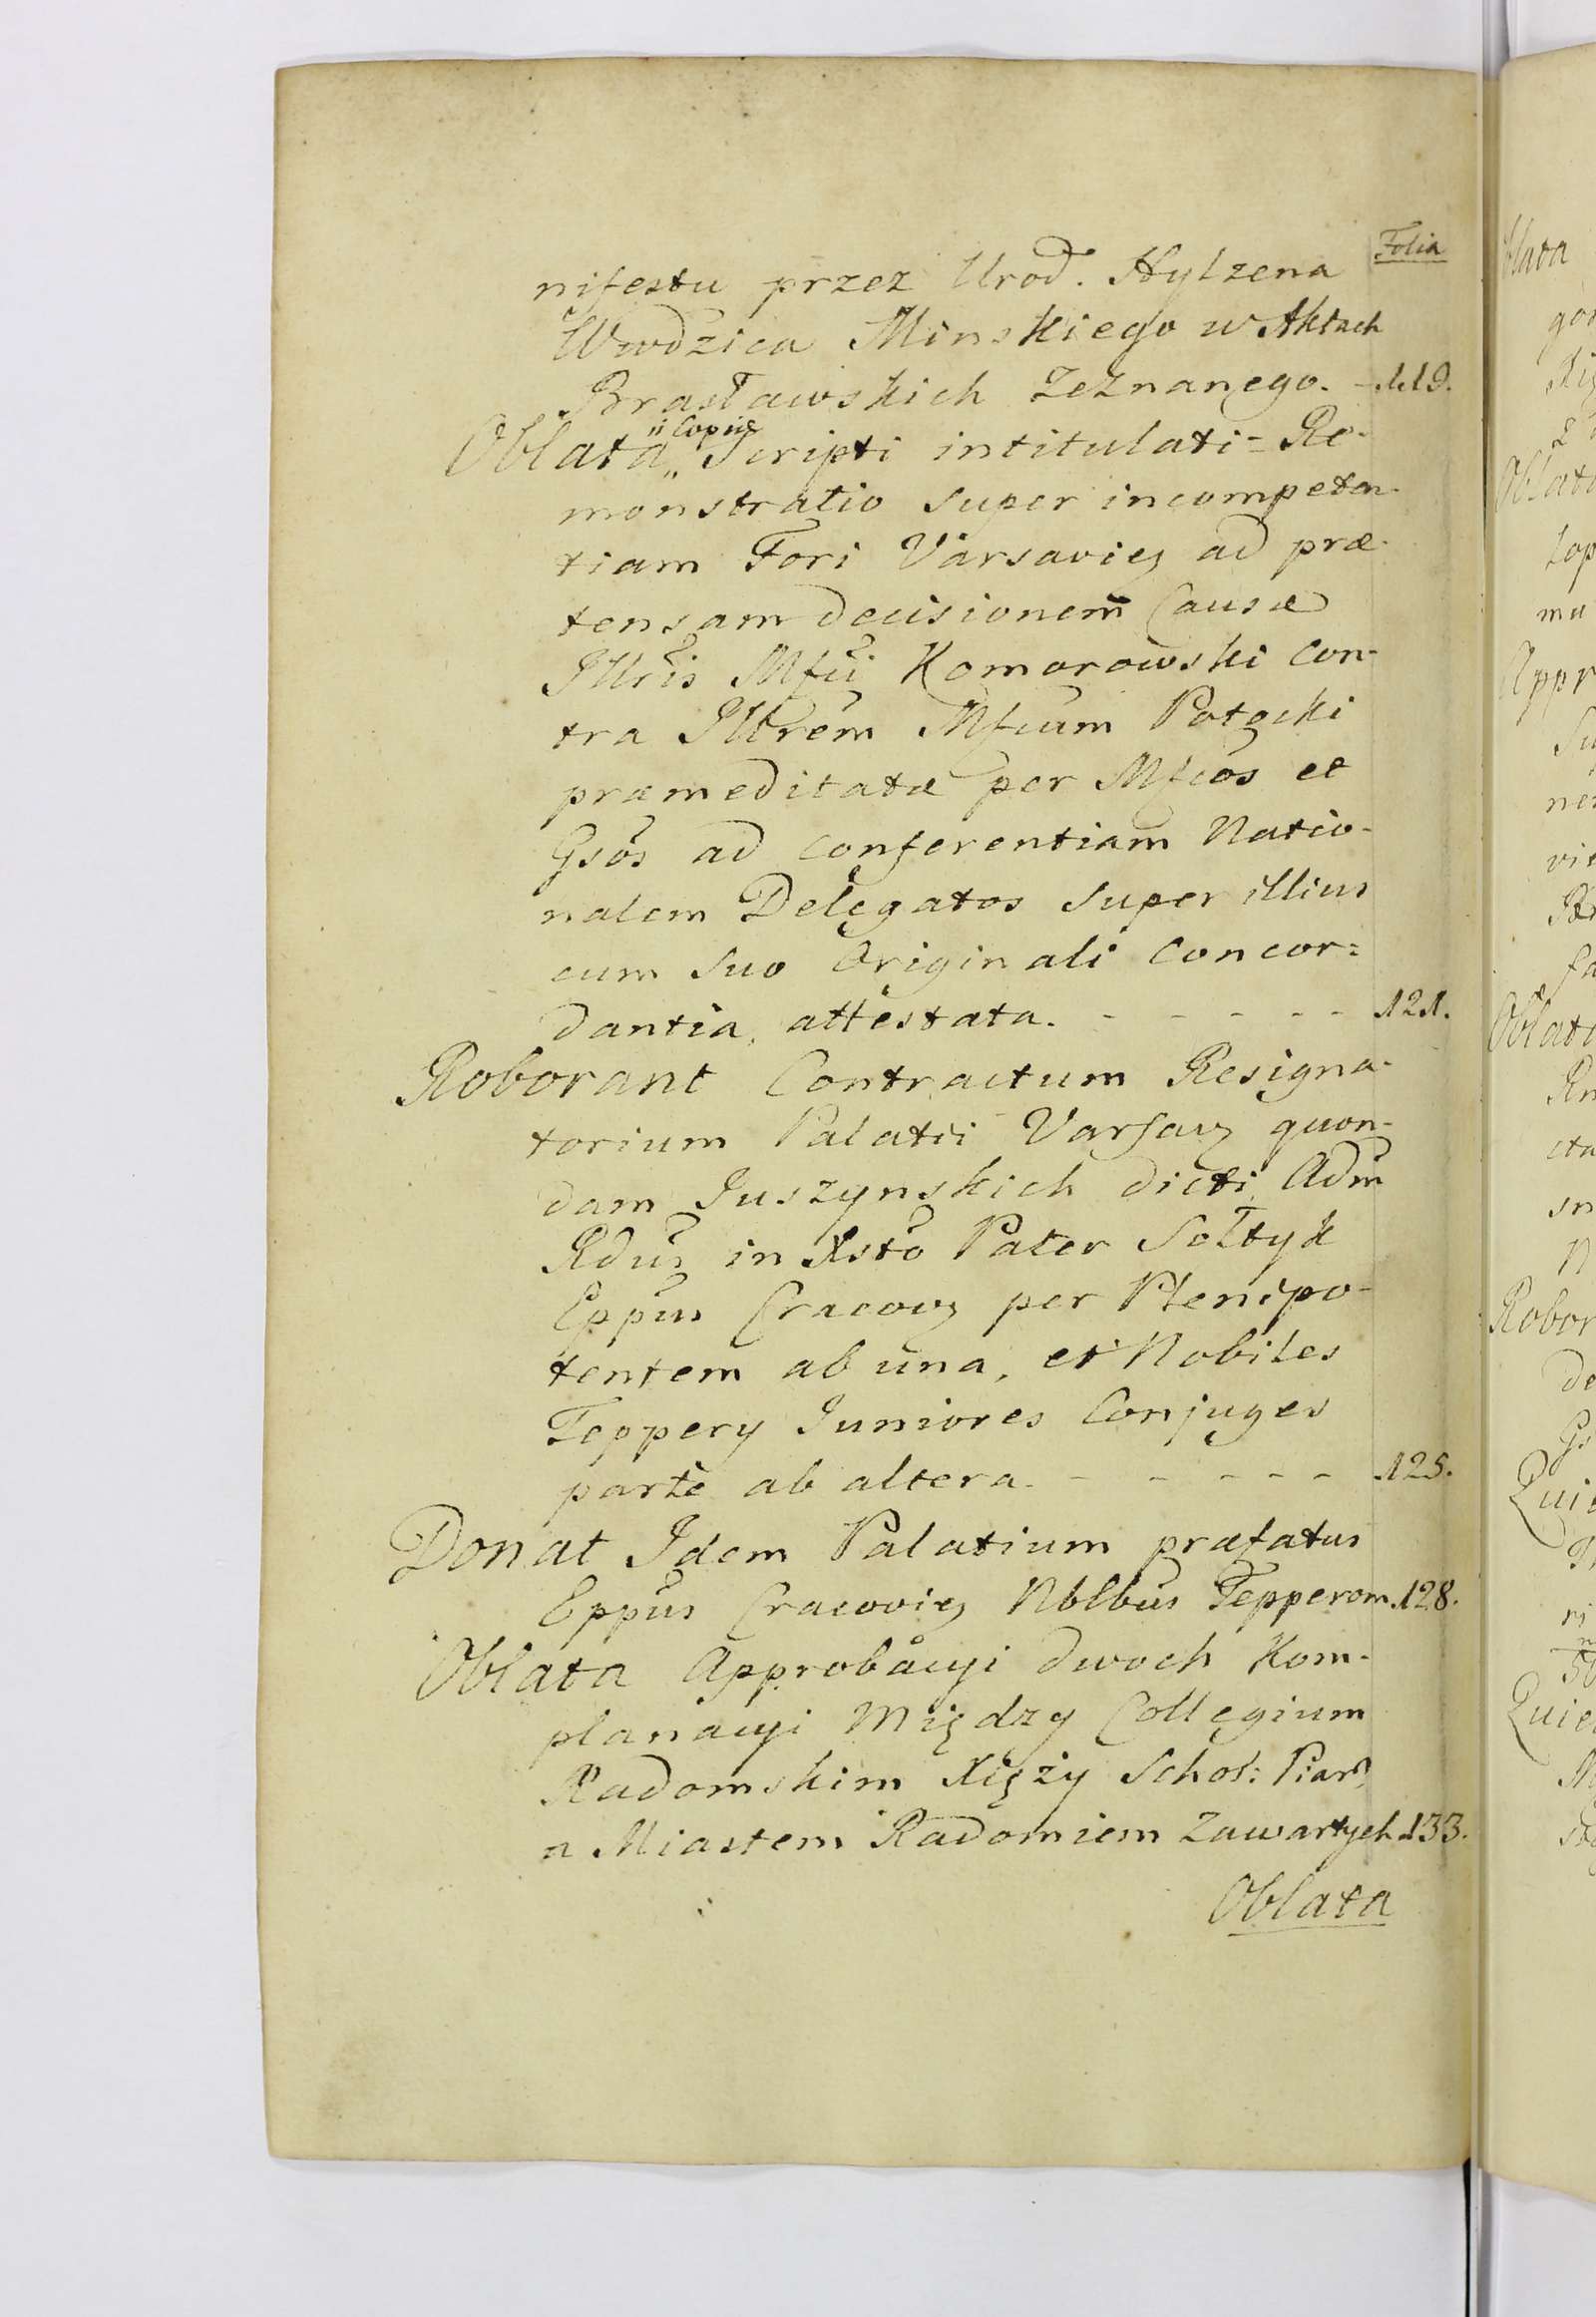 Folia
nifestu przez Urod. Hylzena
Wwdzica Minskiego w Aktach
Brasławskich Zeznanego. - 119.
Oblata „Copiæ„ Scripti intitulati = Re-
monstratio super incompeten-
tiam Fori Varsavię ad præ-
tensam decisionem Causæ
Illris Mfci Komorowski con-
tra Illrem Mfcum Potocki
præmeditatæ per Mfcos et
Gsos ad conferentiam Natio-
nalem Delegatos super illius
cum suo Originali concor=
dantia, attestata. - - - - - 121.
Roborant Contractum Resigna-
torium Palatii Varsav quon-
dam Juszynskich dicti, Adm
Rdus in Xsto Pater Sołtyk
Eppus Cracov per Plenipo-
tentem ab una, et Nobiles
Teppery Juniores Conjuges
parte ab altera. - - - - - 125.
Donat Idem Palatium præfatus
Eppus Cracovię Nblbus Tepperom. 128.
Oblata Approbacyi dwoch Kom-
planacyi Między Collegium
Radomskim Xięży Schol: Piar
a Miastem Radomiem Zawartych 133.
Oblata